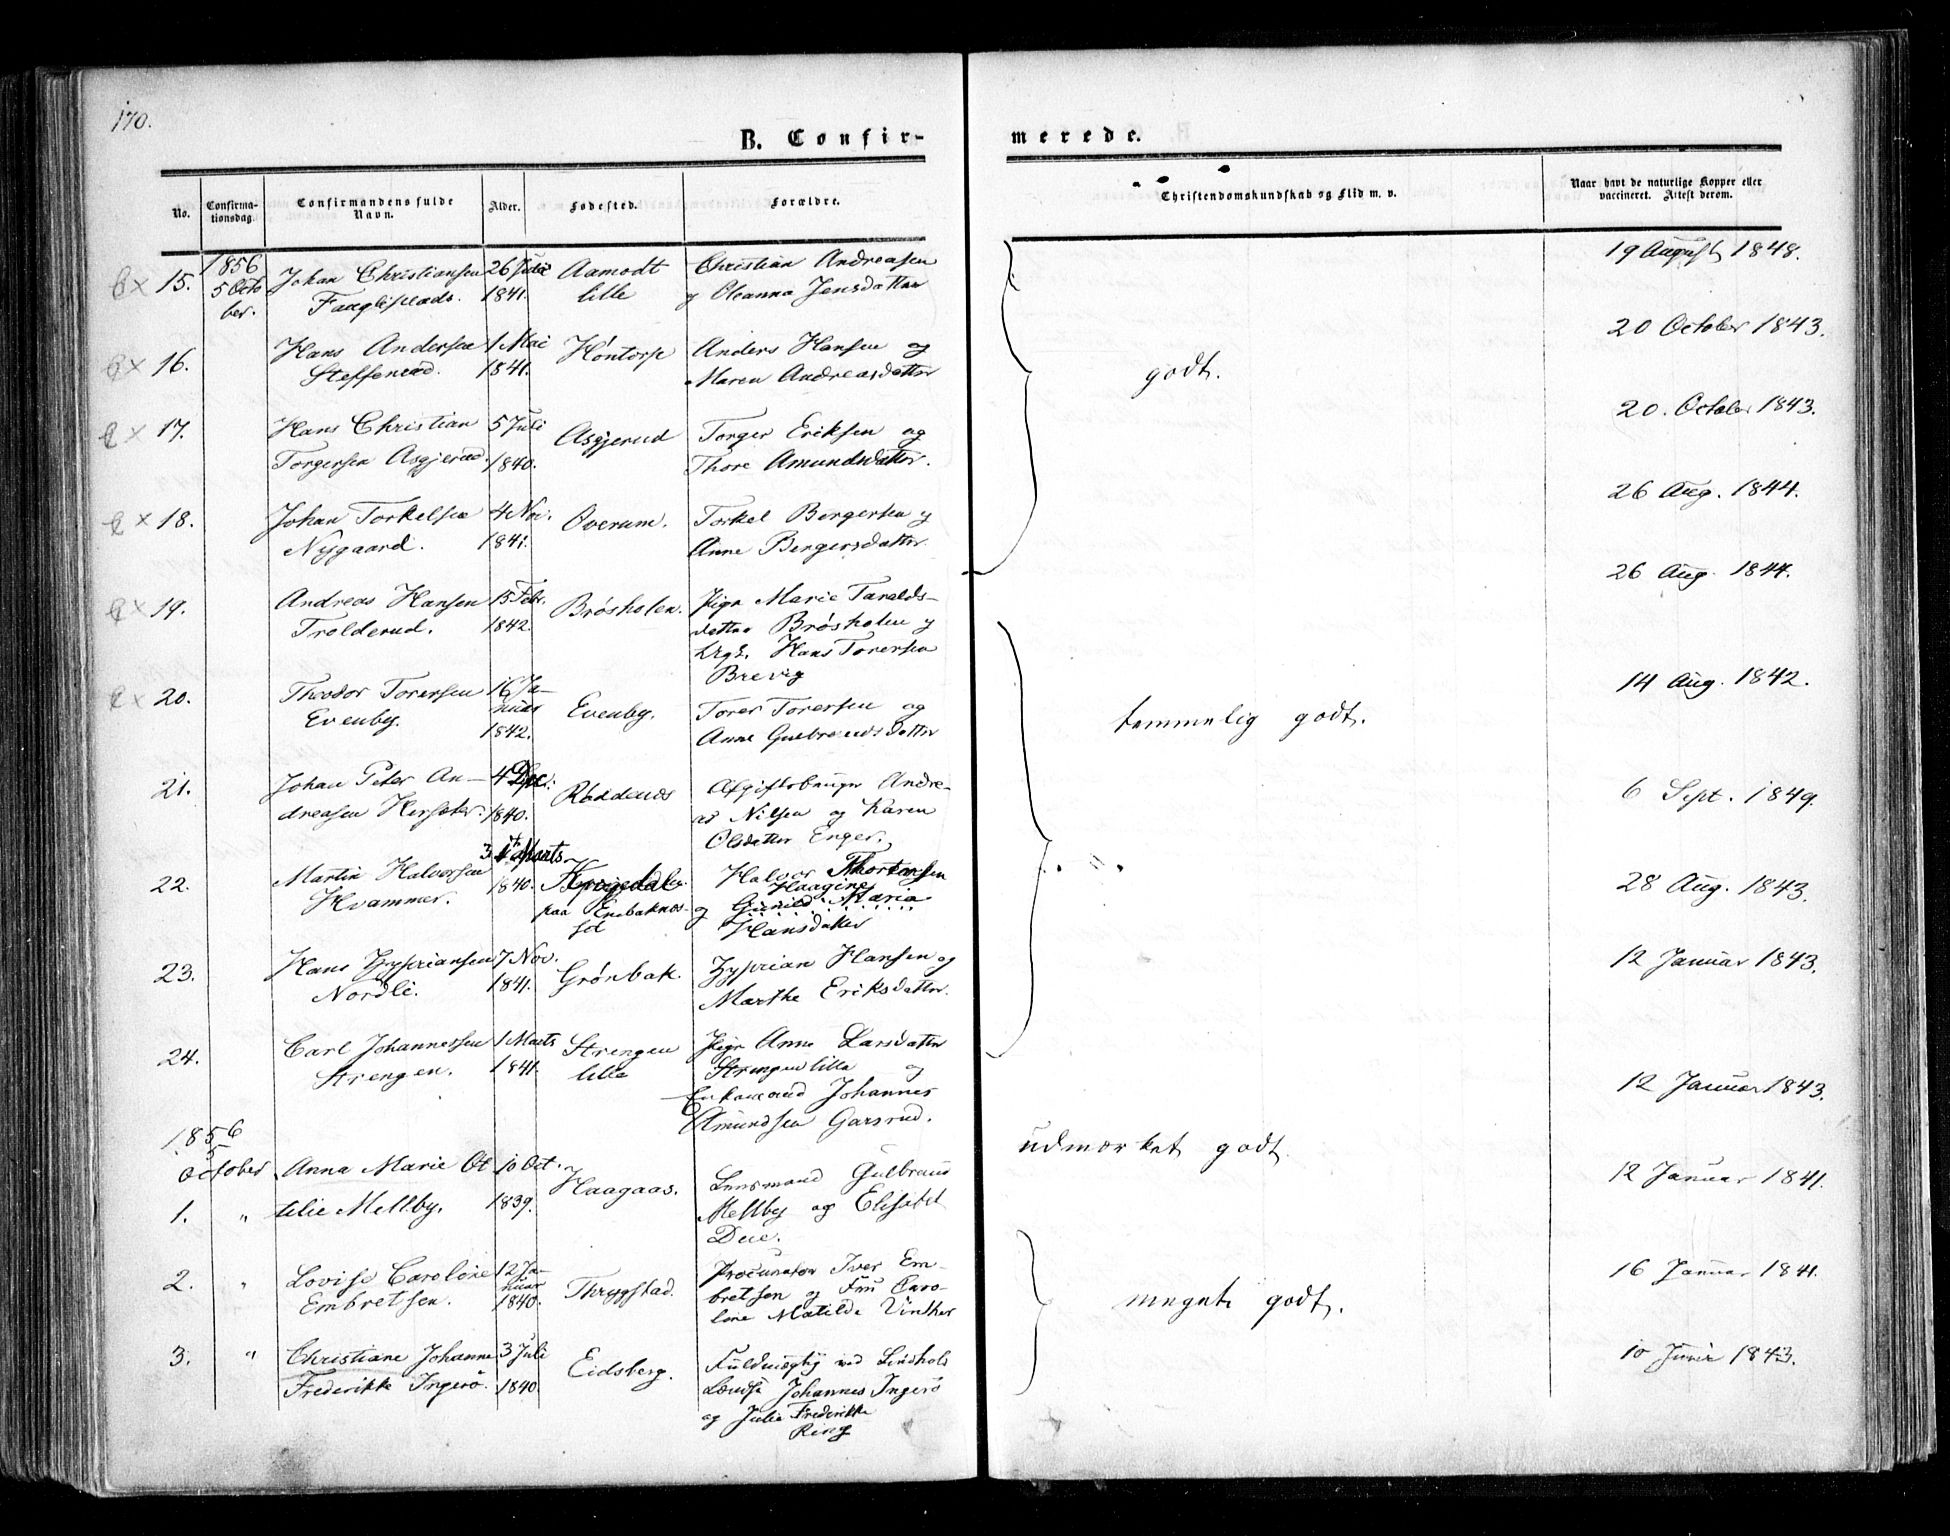 170.
B. Confir-
merede.
No.
Confirma-
tionsdag.
Confirmandens fulde
Navn.
Alder.
Fødested.
Forældre.
Christendomskundskab og Flid m. v.
Naar havt de naturlige Kopper eller
vaccineret. Attest derom.
1856
15. 5 Octo Johan Christiansen 26 Juli Aamodt Christian Andreasen
ber. 1841. lille Oleanna Jensdatter
19 August 1848.
16. Hans Andersen 1 Mai Anders Hansen og
1841. Maren Andreasdatter
godt.
20 October 1843.
17. Hans Christian 5 Juli Asgjerud Torger Eriksen og
Torgersen Asgjerud. 1840. Thore Amundsdatter.
20. October 1843.
18. Johan Torkelsen 4 Nov. Overum. Torkel Bergersen
Nygaard. 1841. Anne Bergersdatter
26 Aug. 1844.
19. Andreas Hansen 15 Febr. Brøsholen. Pige Marie Taralds-
Trolderud. 1842. datter Brøsholen
Hans Torersen
Brevig
26 Aug. 1844.
20. Theodor Torersen 16 Ja- Evenby. Torer Torersen og
Evenby. nuar Anne Gulbrandsdatter
1842.
temmelig godt.
14 Aug. 1842.
21. Johan Peter An- 4 Dec: Andre-
dreasen 1840. as Nilsen og Karen
Olsdatter Enger.
6 Sept. 1849.
22. Martin Halvorsen Marts Halvor
Hvammer. 1840. Haagine
paa og Gunild Maria
Hansdatter
28 Aug. 1843.
23. Hans Zypriansen 7 Nov. Grønbak. Zyprian Hansen og
Nordli. 1841. Marthe Eriksdatter.
12 Januar 1843.
24. Carl Johannessen 1 Marts Strengen Pige Anne Larsdatter
Strengen. 1841. lille Strengen lille og
Enkemand Johannes
Amundsen Garsrud.
12 Januar 1843.
1856
5
October Anna Marie Ot 10 Oct. Haagaas. Lensmand Gulbrand
1. " tilie Mellby. 1839. Mellby og Elisabet
Due.
udmærket godt
12 Januar 1841.
2. " Lovise Caroline 12 Ja- Thrygstad. Procurator Iver Em-
Embretsen. nuar bretsen og Fru Caro-
1840. line Matilde Vinther
meget godt.
16 Januar 1841.
3. " Christiane Johanne 3 Juli Eidsberg. Fuldmægtig ved
Frederikke Ingerø. 1840. Johannes Ingerø
og Julie Frederikke
Ring
10 Juni 1843.